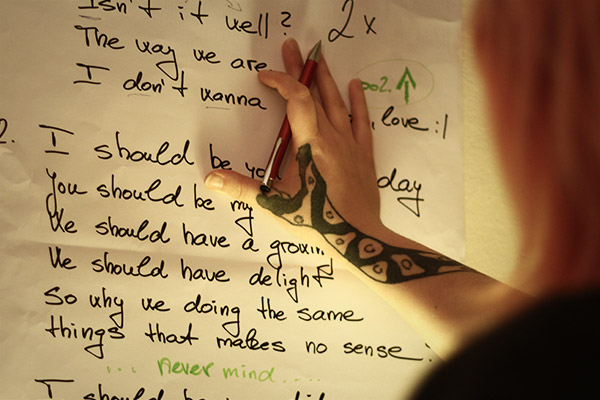 Isn't it well? 2x
The way we are
I don't wanna , love :|
002. ↑
2. I should be day
you should be my
We should have a growin
We should have delight
So why we doing the same
things that makes no sense :
... never mind ....
I should